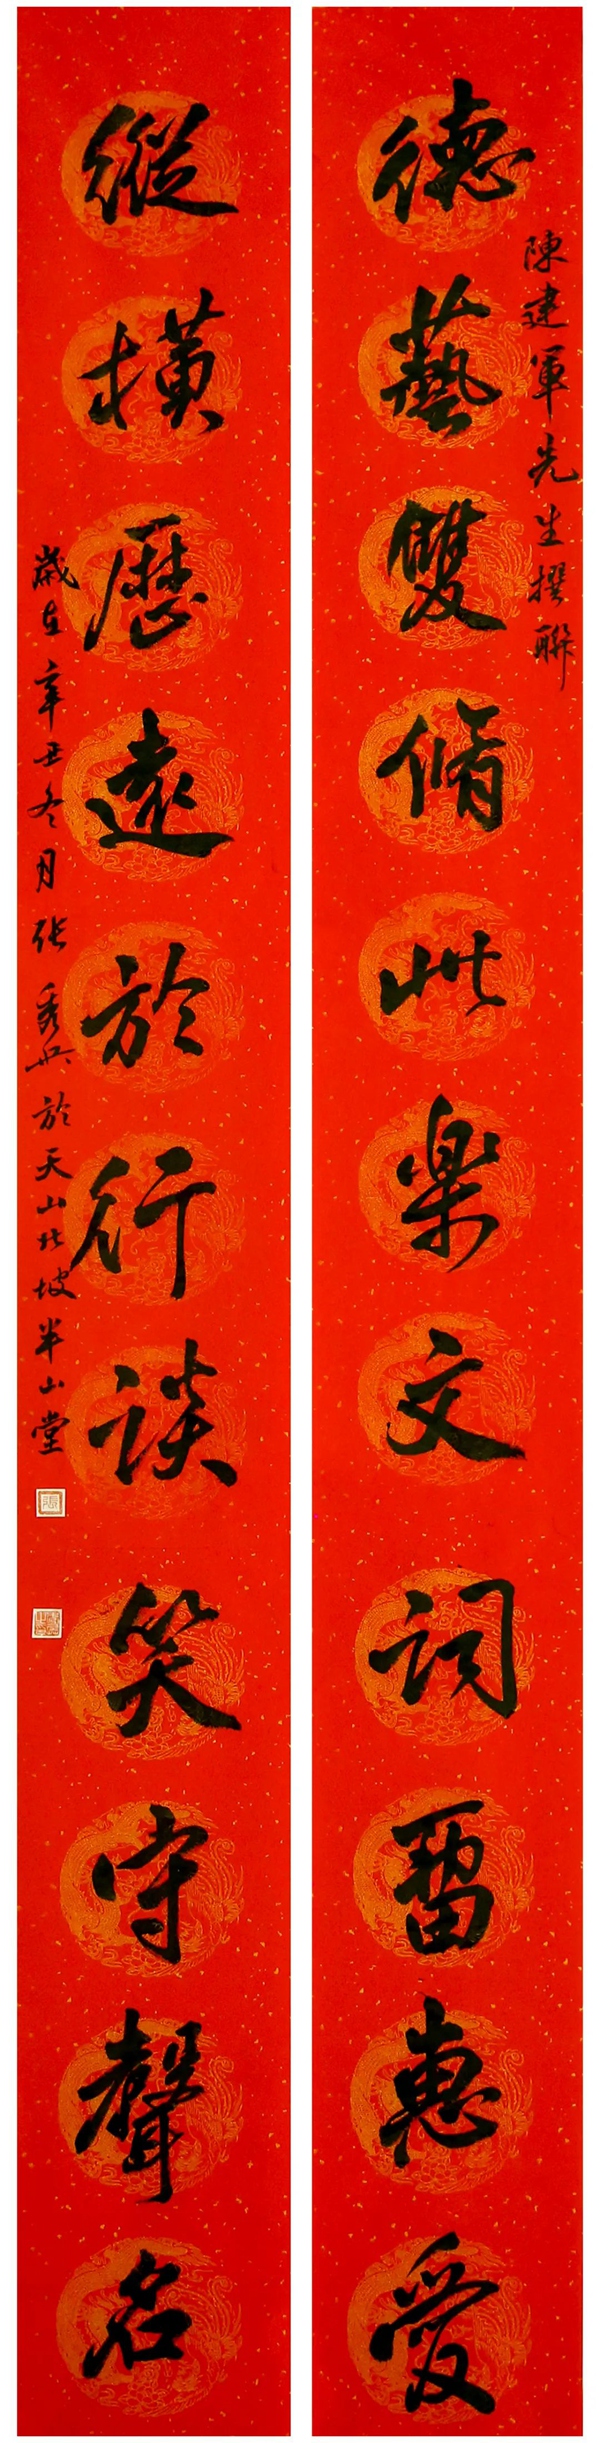 德藝雙脩此樂文詞留惠愛
陳建軍先生撰聯
縱橫歷遠於行談笑守聲名
歲在辛丑冬月張秀兴於天山北坡半山堂